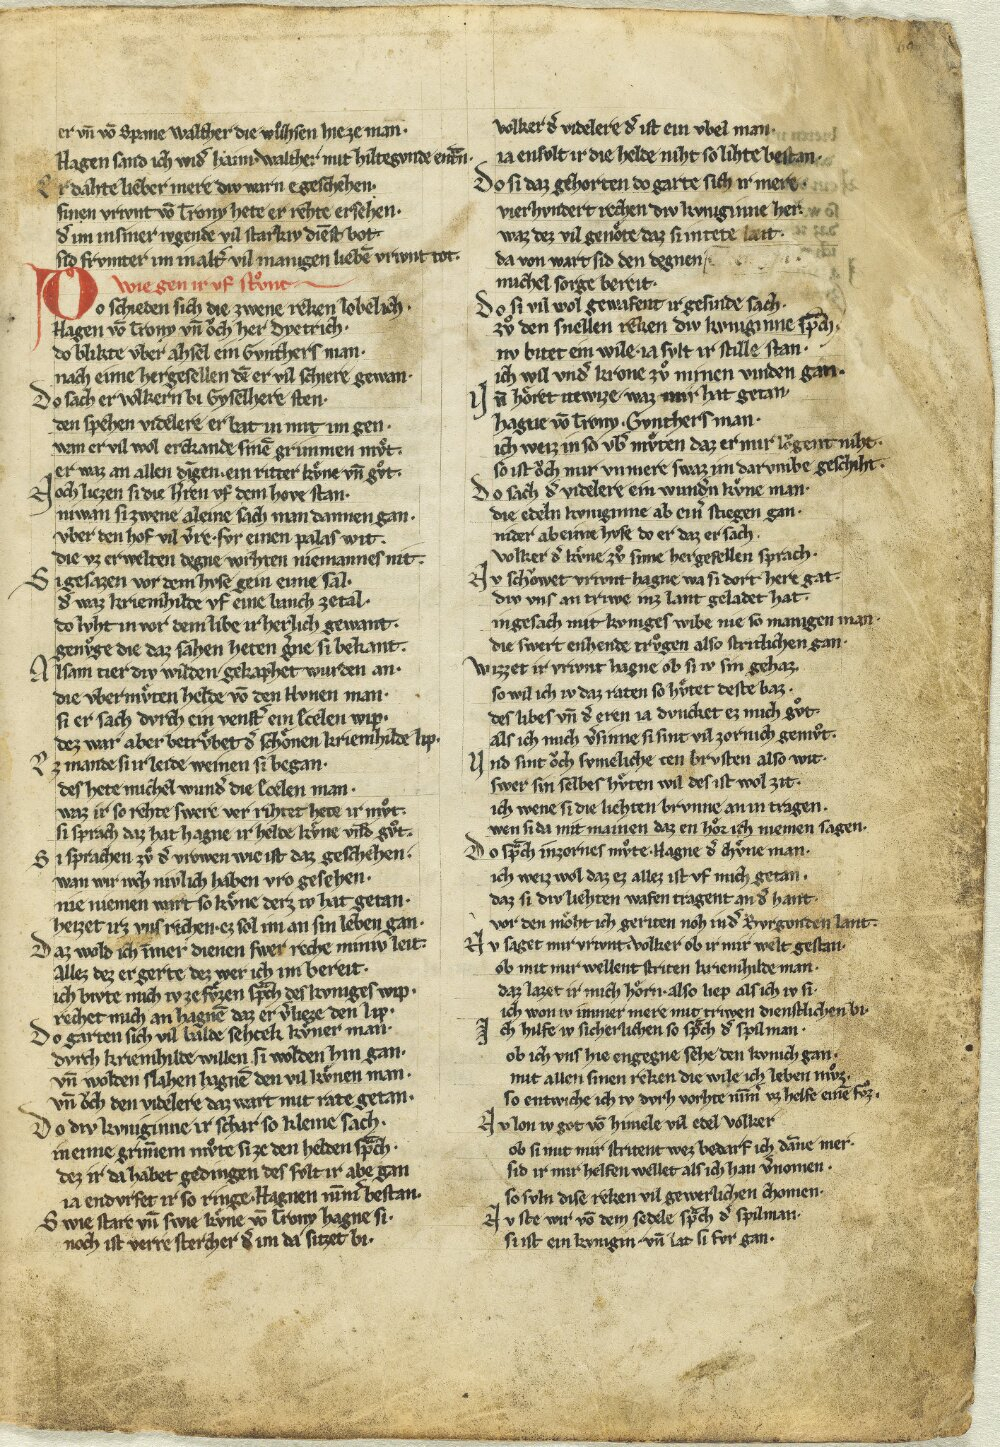 er vn̄ vō Spane walther die wͦhsen hieze man·
Hagen sand ich wid᷑ haim· walther mit hiltegvnde entrān·
Er dahte lieber mere div warn e geschehen·
sinen vrivnt vō Trony hete er rehte ersehen·
d᷑ im in siner ivgende vil starkiv dienst bot·
sid frvmter im in alt᷑ vil manigen liebē vrivnt tot·
wie gen ir vf stͦnt
Do schieden sich die zwene reken lobelich·
Hagen vō Trony vn̄ ͦch her Dyetrich·
do blikte vber ahsel ein Gvnthers man·
nach eime hergesellen dē er vil schiere gewan·
Do sach er volkern bi Gyselhere sten·
den spehen videlere er bat in mit im gen·
wan er vil wol erckande sinē grimmen mͦt·
er waz an allen dīgen· ein ritter kͤne vn̄ gͦt·
Noch liezen si die h᷑ren vf dem hove stan·
niwan si zwene aleine sach man dannen gan·
vber den hof vil v᷑re· fvr einen palas wit·
die vz erwelten degne vorhten niemannes nit·
Si gesazen vor dem hvse gein eime sal·
d᷑ waz kriemhilde vf eine banch zetal·
do lvht in vor dem libe ir herlich gewant·
genͦge die daz sahen heten g᷑ne si bekant·
Alsam tier div wilden· gekaphet wurden an·
die vbermͤten helde vō den Hvnen man·
si er sach dvrch ein venst᷑ ein Ecelen wip·
dez war aber betrͤbet d᷑ schͦnen kriemhilde lip·
Ez mande si ir leide weinen si began·
des hete michel wund᷑ die Ecelen man·
waz ir so rehte swere ver rihtet hete ir mͦt·
si sprach daz hat hagne ir helde kͤne vnd gͦt·
Si sprachen zͦ d᷑ vrowen wie ist daz geschehen·
wan wir ivch nivlich haben vro gesehen·
nie niemen wart so kͤne derz iv hat getan·
heizet irz vns rechen· ez sol im an sin leben gan·
Daz wold ich īmer dienen swer reche miniv leit·
Allez dez er gerte dez wer ich im bereit·
ich bivte mich iv ze fͤzen sp᷑ch des kvniges wip·
rechet mich an hagnē daz er v᷑lieze den lip·
Do garten sich vil balde sehtek kͤner man·
dvrch kriemhilde willen si wolden hin gan·
vn̄ wolden slahen hagnē den vil kͤnen man·
vn̄ ͦch den videlere daz wart mit rate getan·
Do div kvniginne ir schar so kleine sach·
in eime grim̄em mͦte si ze den helden sp᷑ch·
dez ir da habet gedingen des svlt ir abe gan
ia endvrfet ir so ringe· Hagnen nim̄᷑ bestan·
Swie starc vn̄ swie kͤne vō Trony hagne si·
noch ist verre stercher d᷑ im da sitzet bi·
volker d᷑ videlere d᷑ ist ein vbel man·
ia ensvlt ir die helde niht so lihte bestan·
Do si daz gehorten do garte sich ir mere·
vierhvndert rechen div kvniginne her
waz dez vil genͦte daz si in tete leit·
da von wart sid den degnen
michel sorge bereit·
Do si vil wol gewafent ir gesinde sach·
zͦ den snellen reken div kvniginne sp᷑ch·
nv bitet ein wile· ia svlt ir stille stan·
ich wil vnd᷑ krone zͦ minen vinden gan·
Vn̄ hͦret itewize waz mir hat getan
hagne vō Trony· Gvnthers man·
ich weiz in so vb᷑ mͤten daz er mir lͦgent niht·
so ist ͦch mir vnmere swaz im darvmbe geschiht·
Do sach d᷑ videlere ein wund᷑n kͤne man·
die edeln kvniginne ab ein᷑ stiegen gan·
nider ab eime hvse do er daz er sach·
volker d᷑ kͤne zͦ sime hergesellen sprach·
Nv schͦwet vrivnt hagne wa si dort here gat·
div vns an triwe inz lant geladet hat·
in gesach mit kvniges wibe nie so manigen man·
die swert enhende trͦgen also stritlichen gan·
Wizzet ir vrivnt hagne ob si iv sin gehaz·
so wil ich iv daz raten so hͤtet deste baz·
des libes vn̄ d᷑ eren ia dvncket ez mich gͦt·
als ich mich v᷑sinne si sint vil zornich gemͦt·
Vnd sint ͦch svmeliche cen brvsten also wit·
swer sin selbes hͤten wil des ist wol zit·
ich wene si die liehten brvnne an in tragen·
wen si da mit mainen daz en hͦr ich niemen sagen·
Do sp᷑ch in zornes mͦte· Hagne d᷑ chͤne man·
ich weiz wol daz ez allez ist vf mich getan·
daz si div liehten wafen tragent an d᷑ hant·
vor den mͦht ich geriten noh in d᷑ Bvrgonden lant·
Nv saget mir vrivnt· volker ob ir mir welt gestan·
ob mit mir wellent striten kriemhilde man·
daz lazet ir mich hͦrn· also liep als ich iv si·
ich won iv immer mere mit triwen dienstlichen bi·
Ich hilfe iv sicherlichen so sp᷑ch d᷑ spilman·
ob ich vns hie engegne sehe den kvnich gan·
mit allen sinen reken die wile ich leben mͦz·
so entwiche ich iv dvrh vorhte nim̄᷑ vz helfe einē fͦz·
Nv lon iv got vō himele vil edel volker
ob si mit mir stritent wez bedarf ich dāne mer·
sid ir mir helfen wellet als ich han v᷑nomen·
so svln dise reken vil gewerlichen chomen·
Nv ste wir vō dem sedele sp᷑ch d᷑ spilman·
si ist ein kvnigin· vn̄ lat si fvr gan·